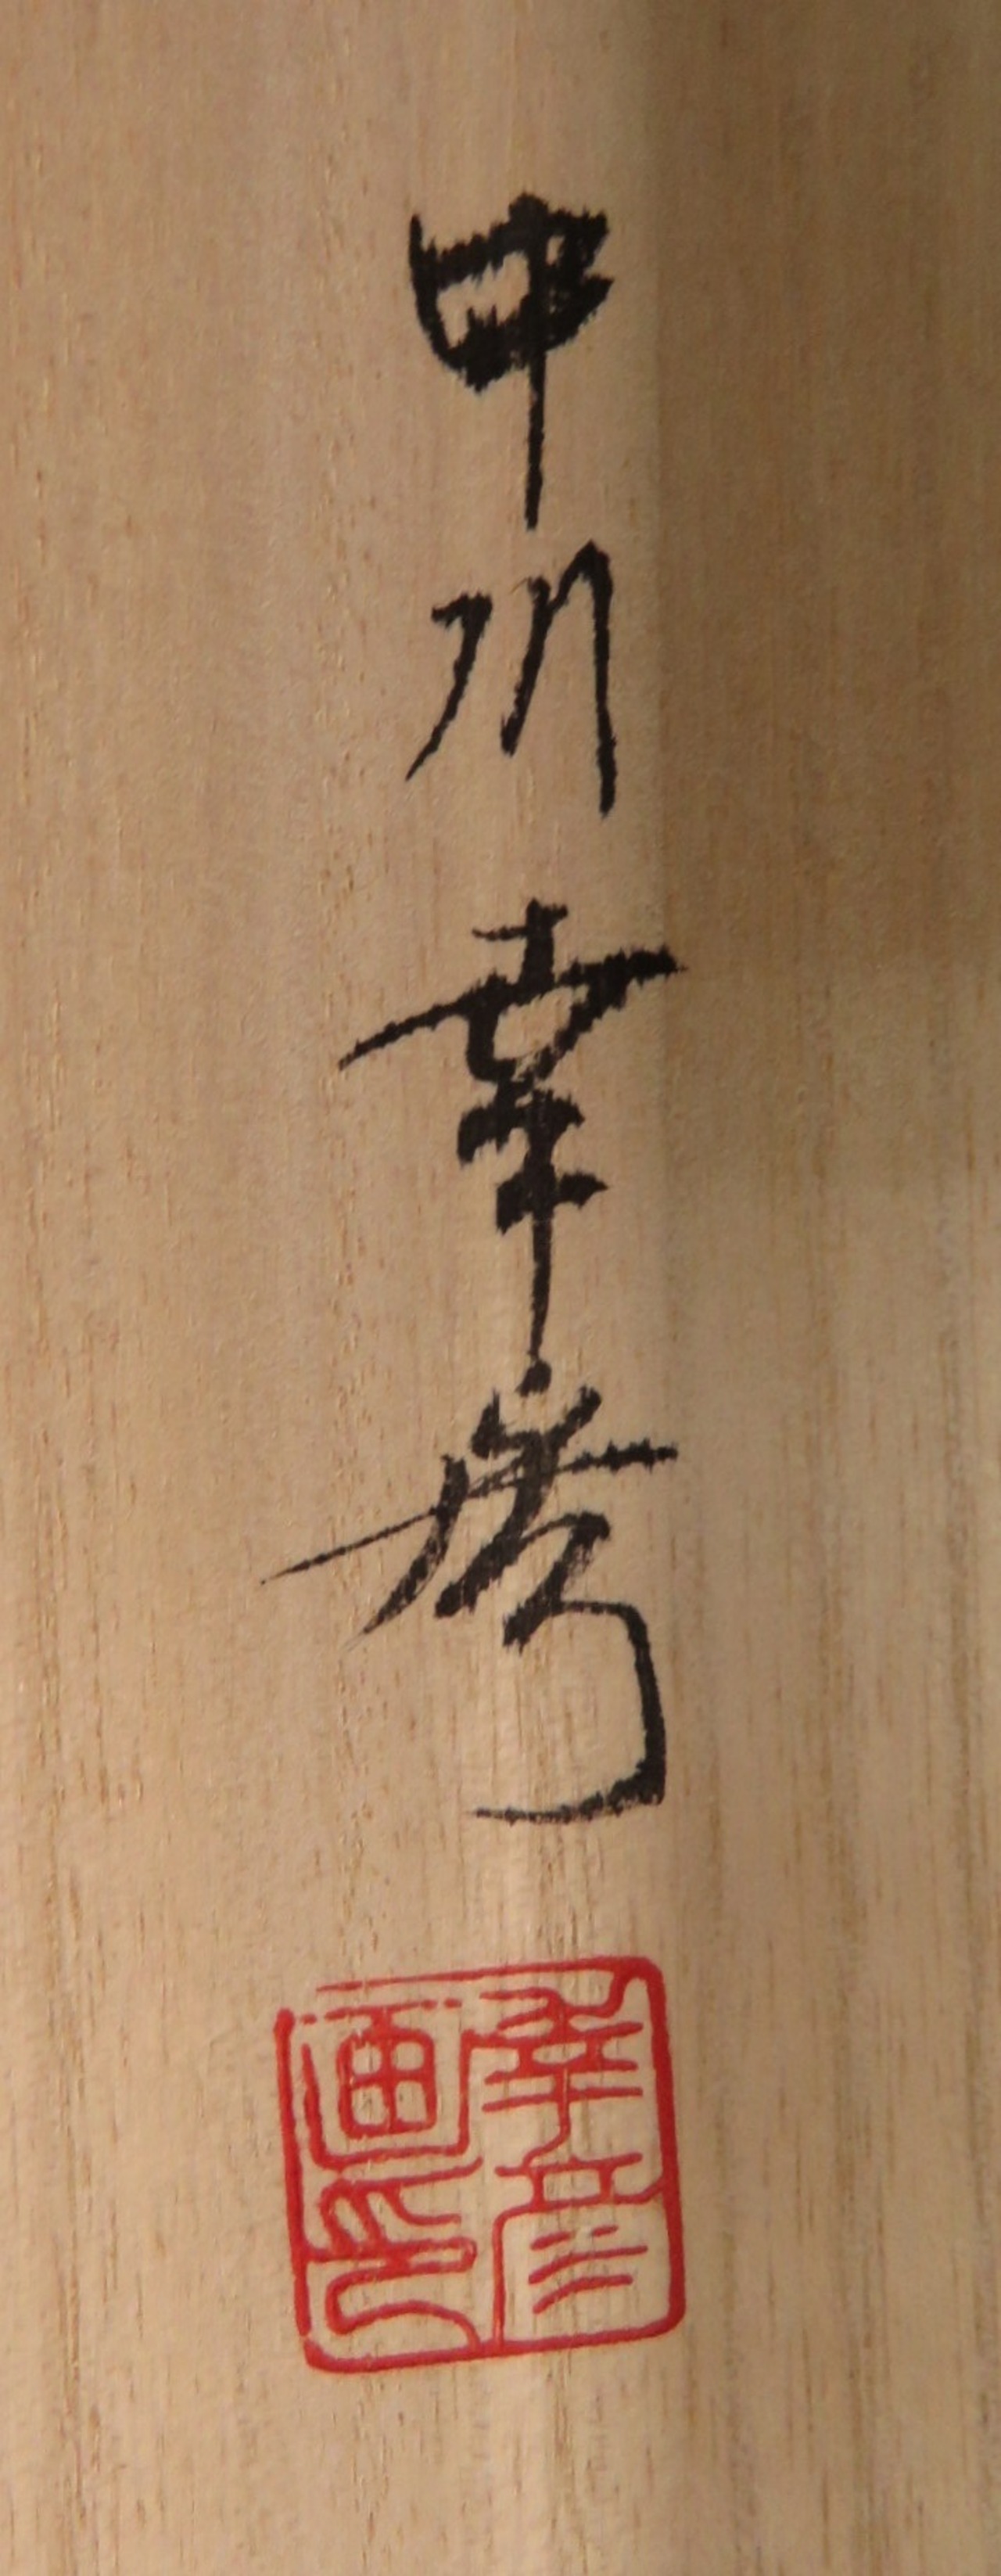 中川幸彦
幸彦
画印